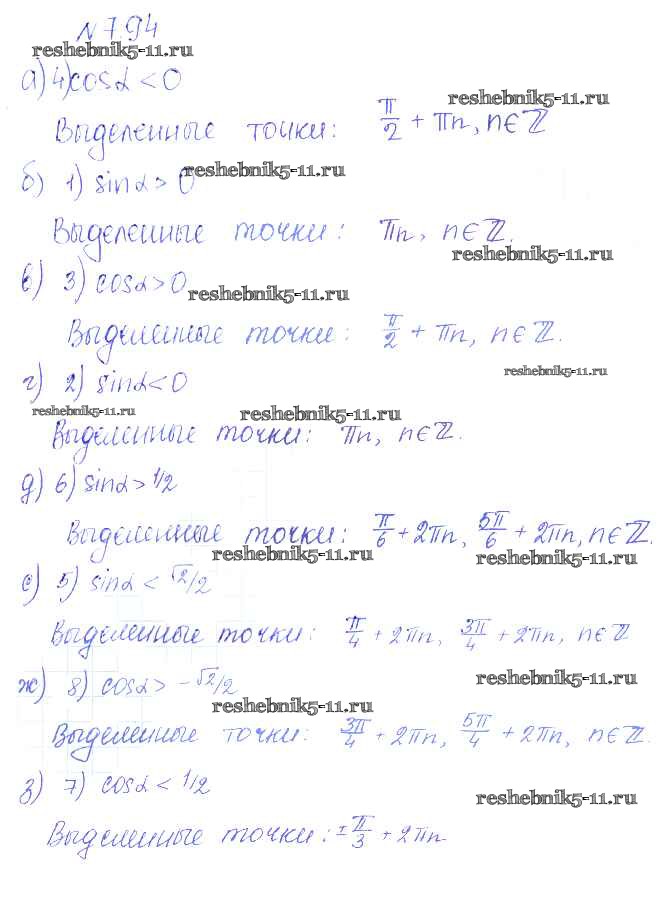 № 7.94
reshebnik5-11.ru
а) 4) cosα < 0
reshebnik5-11.ru
Выделенные точки: π/2 + πn, n∈ℤ
reshebnik5-11.ru
б) 1) sinα > 0
Выделенные точки: πn, n∈ℤ.
reshebnik5-11.ru
в) 3) cosα > 0
reshebnik5-11.ru
Выделенные точки: π/2 + πn, n∈ℤ.
reshebnik5-11.ru
г) 2) sinα < 0
reshebnik5-11.ru
reshebnik5-11.ru
Выделенные точки: πn, n∈ℤ.
д) 6) sinα > 1/2
Выделенные точки: π/6 + 2πn, 5π/6 + 2πn, n∈ℤ.
reshebnik5-11.ru
reshebnik5-11.ru
е) 5) sinα < √2/2
Выделенные точки: π/4 + 2πn, 3π/4 + 2πn, n∈ℤ
reshebnik5-11.ru
ж) 8) cosα > -√2/2
reshebnik5-11.ru
Выделенные точки: 3π/4 + 2πn, 5π/4 + 2πn, n∈ℤ.
з) 7) cosα < 1/2
reshebnik5-11.ru
Выделенные точки: ±π/3 + 2πn